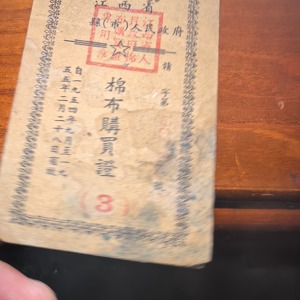 江西省
縣(市)人民政府
領
字第
號
棉布購買證
(3)
自一九五四年九月至一九
五五年二月二十八日有效